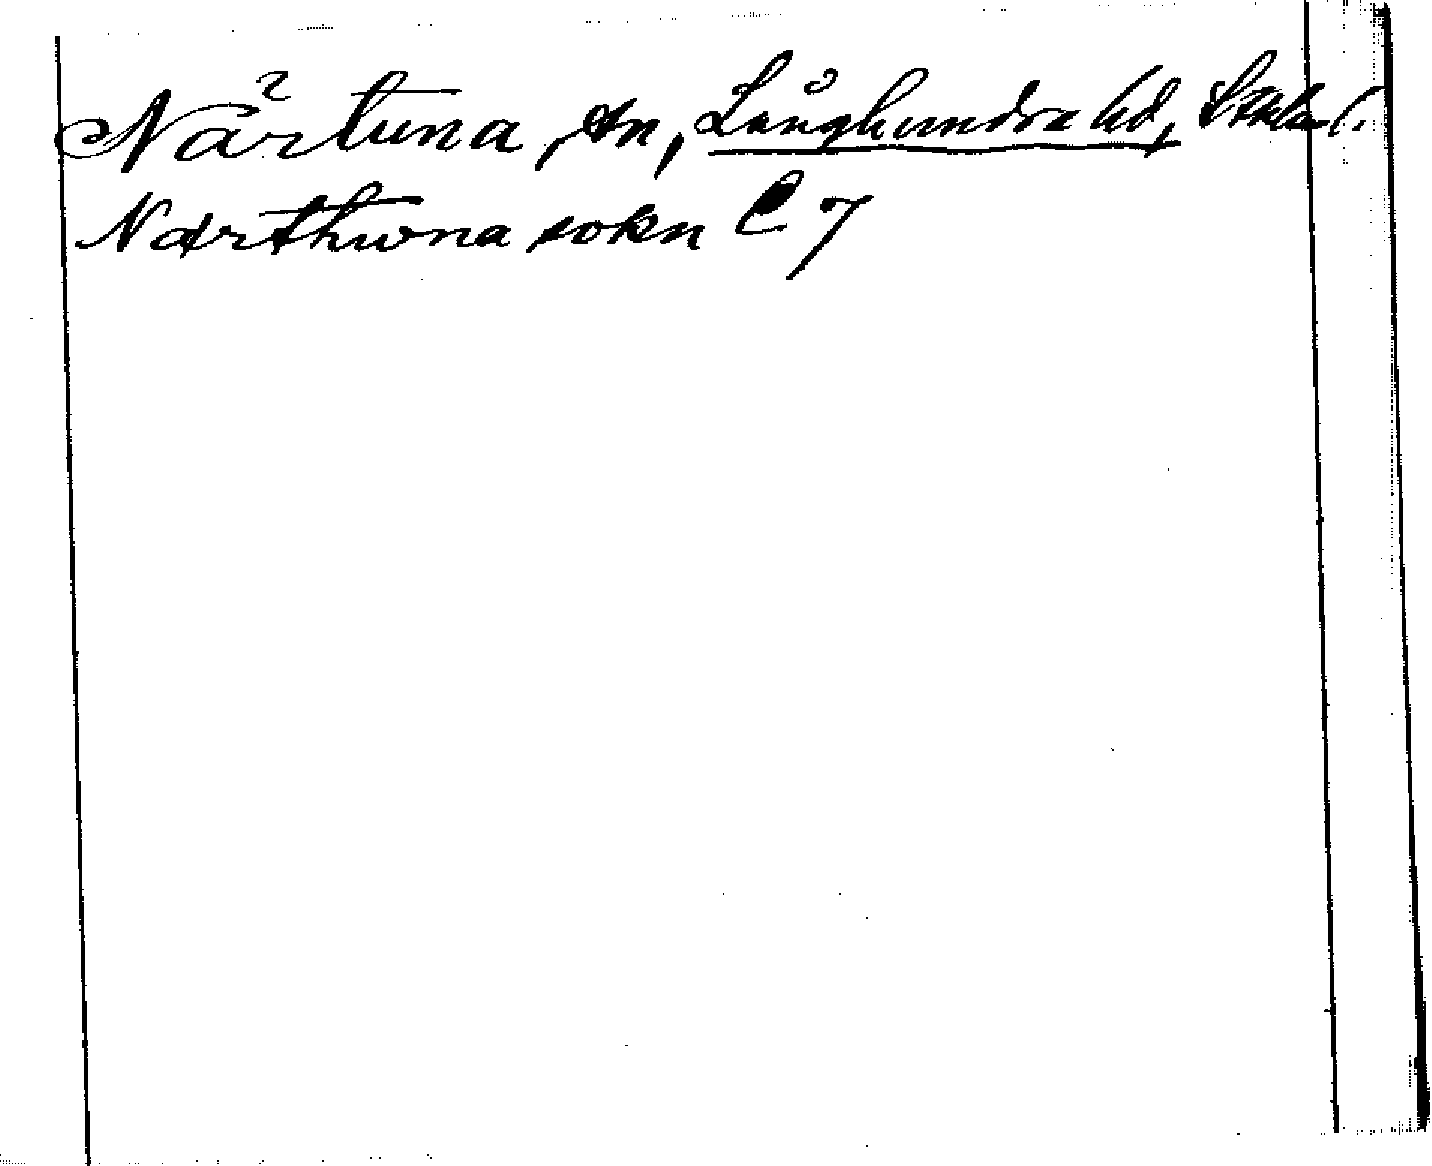 Närtuna, sn, Långhundra hd, Sthlms l.
Nærthwna sokn C 7